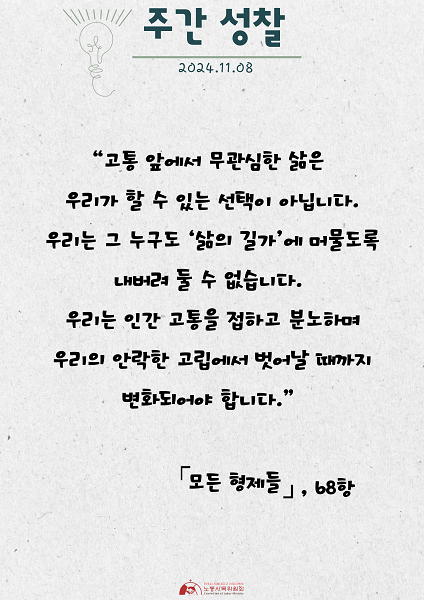 주간 성찰
2024.11.08
“고통 앞에서 무관심한 삶은
우리가 할 수 있는 선택이 아닙니다.
우리는 그 누구도 ‘삶의 길가’에 머물도록
내버려 둘 수 없습니다.
우리는 인간 고통을 접하고 분노하며
우리의 안락한 고립에서 벗어날 때까지
변화되어야 합니다.”
「모든 형제들」, 68항
노동사목위원회